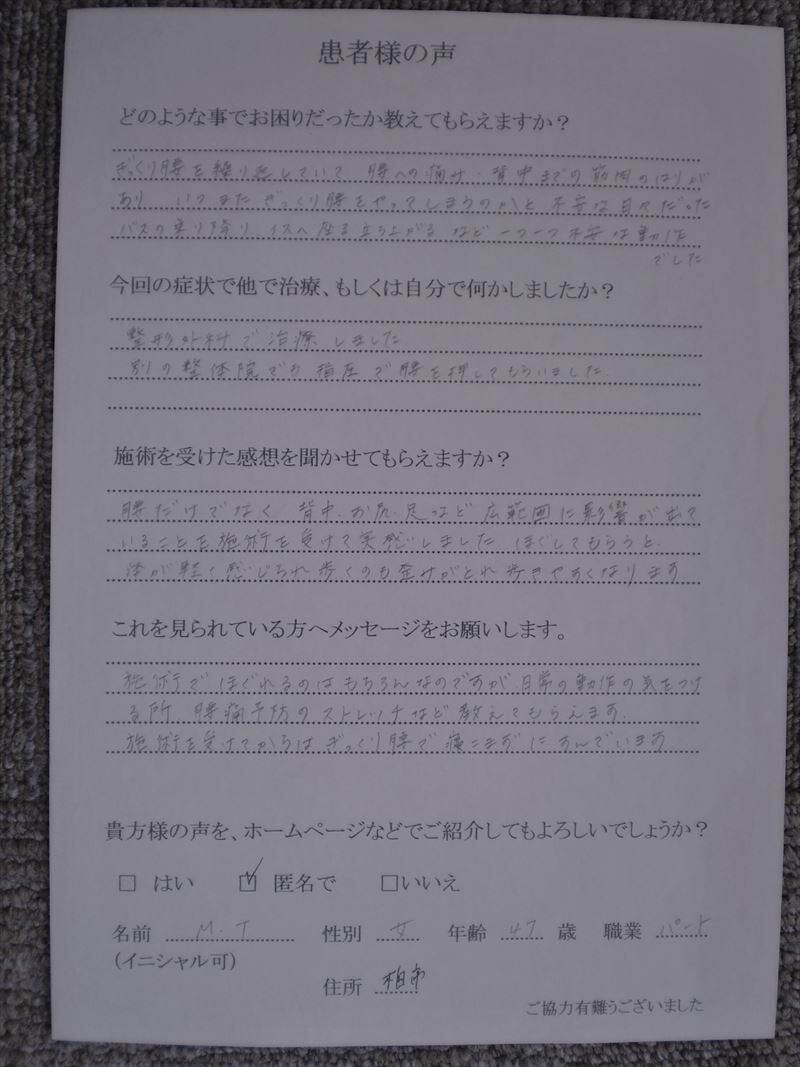 患者様の声
どのような事でお困りだったか教えてもらえますか？
ぎっくり腰を繰り返していて 腰への痛み・背中までの筋肉のはりが
あり いつまたぎっくり腰をやってしまうのかと 不安な日々だった
バスの乗り降り、イスへ座る立ち上がる など 一つ一つ不安な動作
でした
今回の症状で他で治療、もしくは自分で何かしましたか？
整形外科で治療しました
別の整体院での指圧で腰を押してもらいました。
施術を受けた感想を聞かせてもらえますか？
腰だけでなく 背中、お尻、足など 広範囲に影響が出て
いることを施術を受けて実感しました ほぐしてもらうと、
体が軽く感じられ歩くのも歪みがとれ歩きやすくなります
これを見られている方へメッセージをお願いします。
施術でほぐれるのはもちろんなのですが、日常の動作の気をつけ
る所、腰痛予防のストレッチなど教えてもらえます。
施術を受けてからはぎっくり腰で寝こまずにすんでいます
貴方様の声を、ホームページなどでご紹介してもよろしいでしょうか？
□ はい ☑ 匿名で □いいえ
名前 M.T 性別 女 年齢 47 歳 職業 パート
(イニシャル可)
住所 柏市
ご協力有難うございました